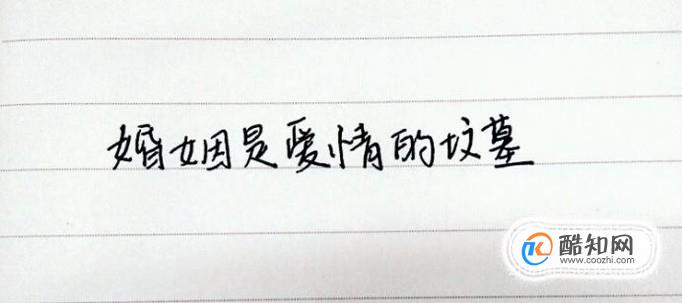 婚姻是爱情的坟墓
酷知网
www.coozhi.com